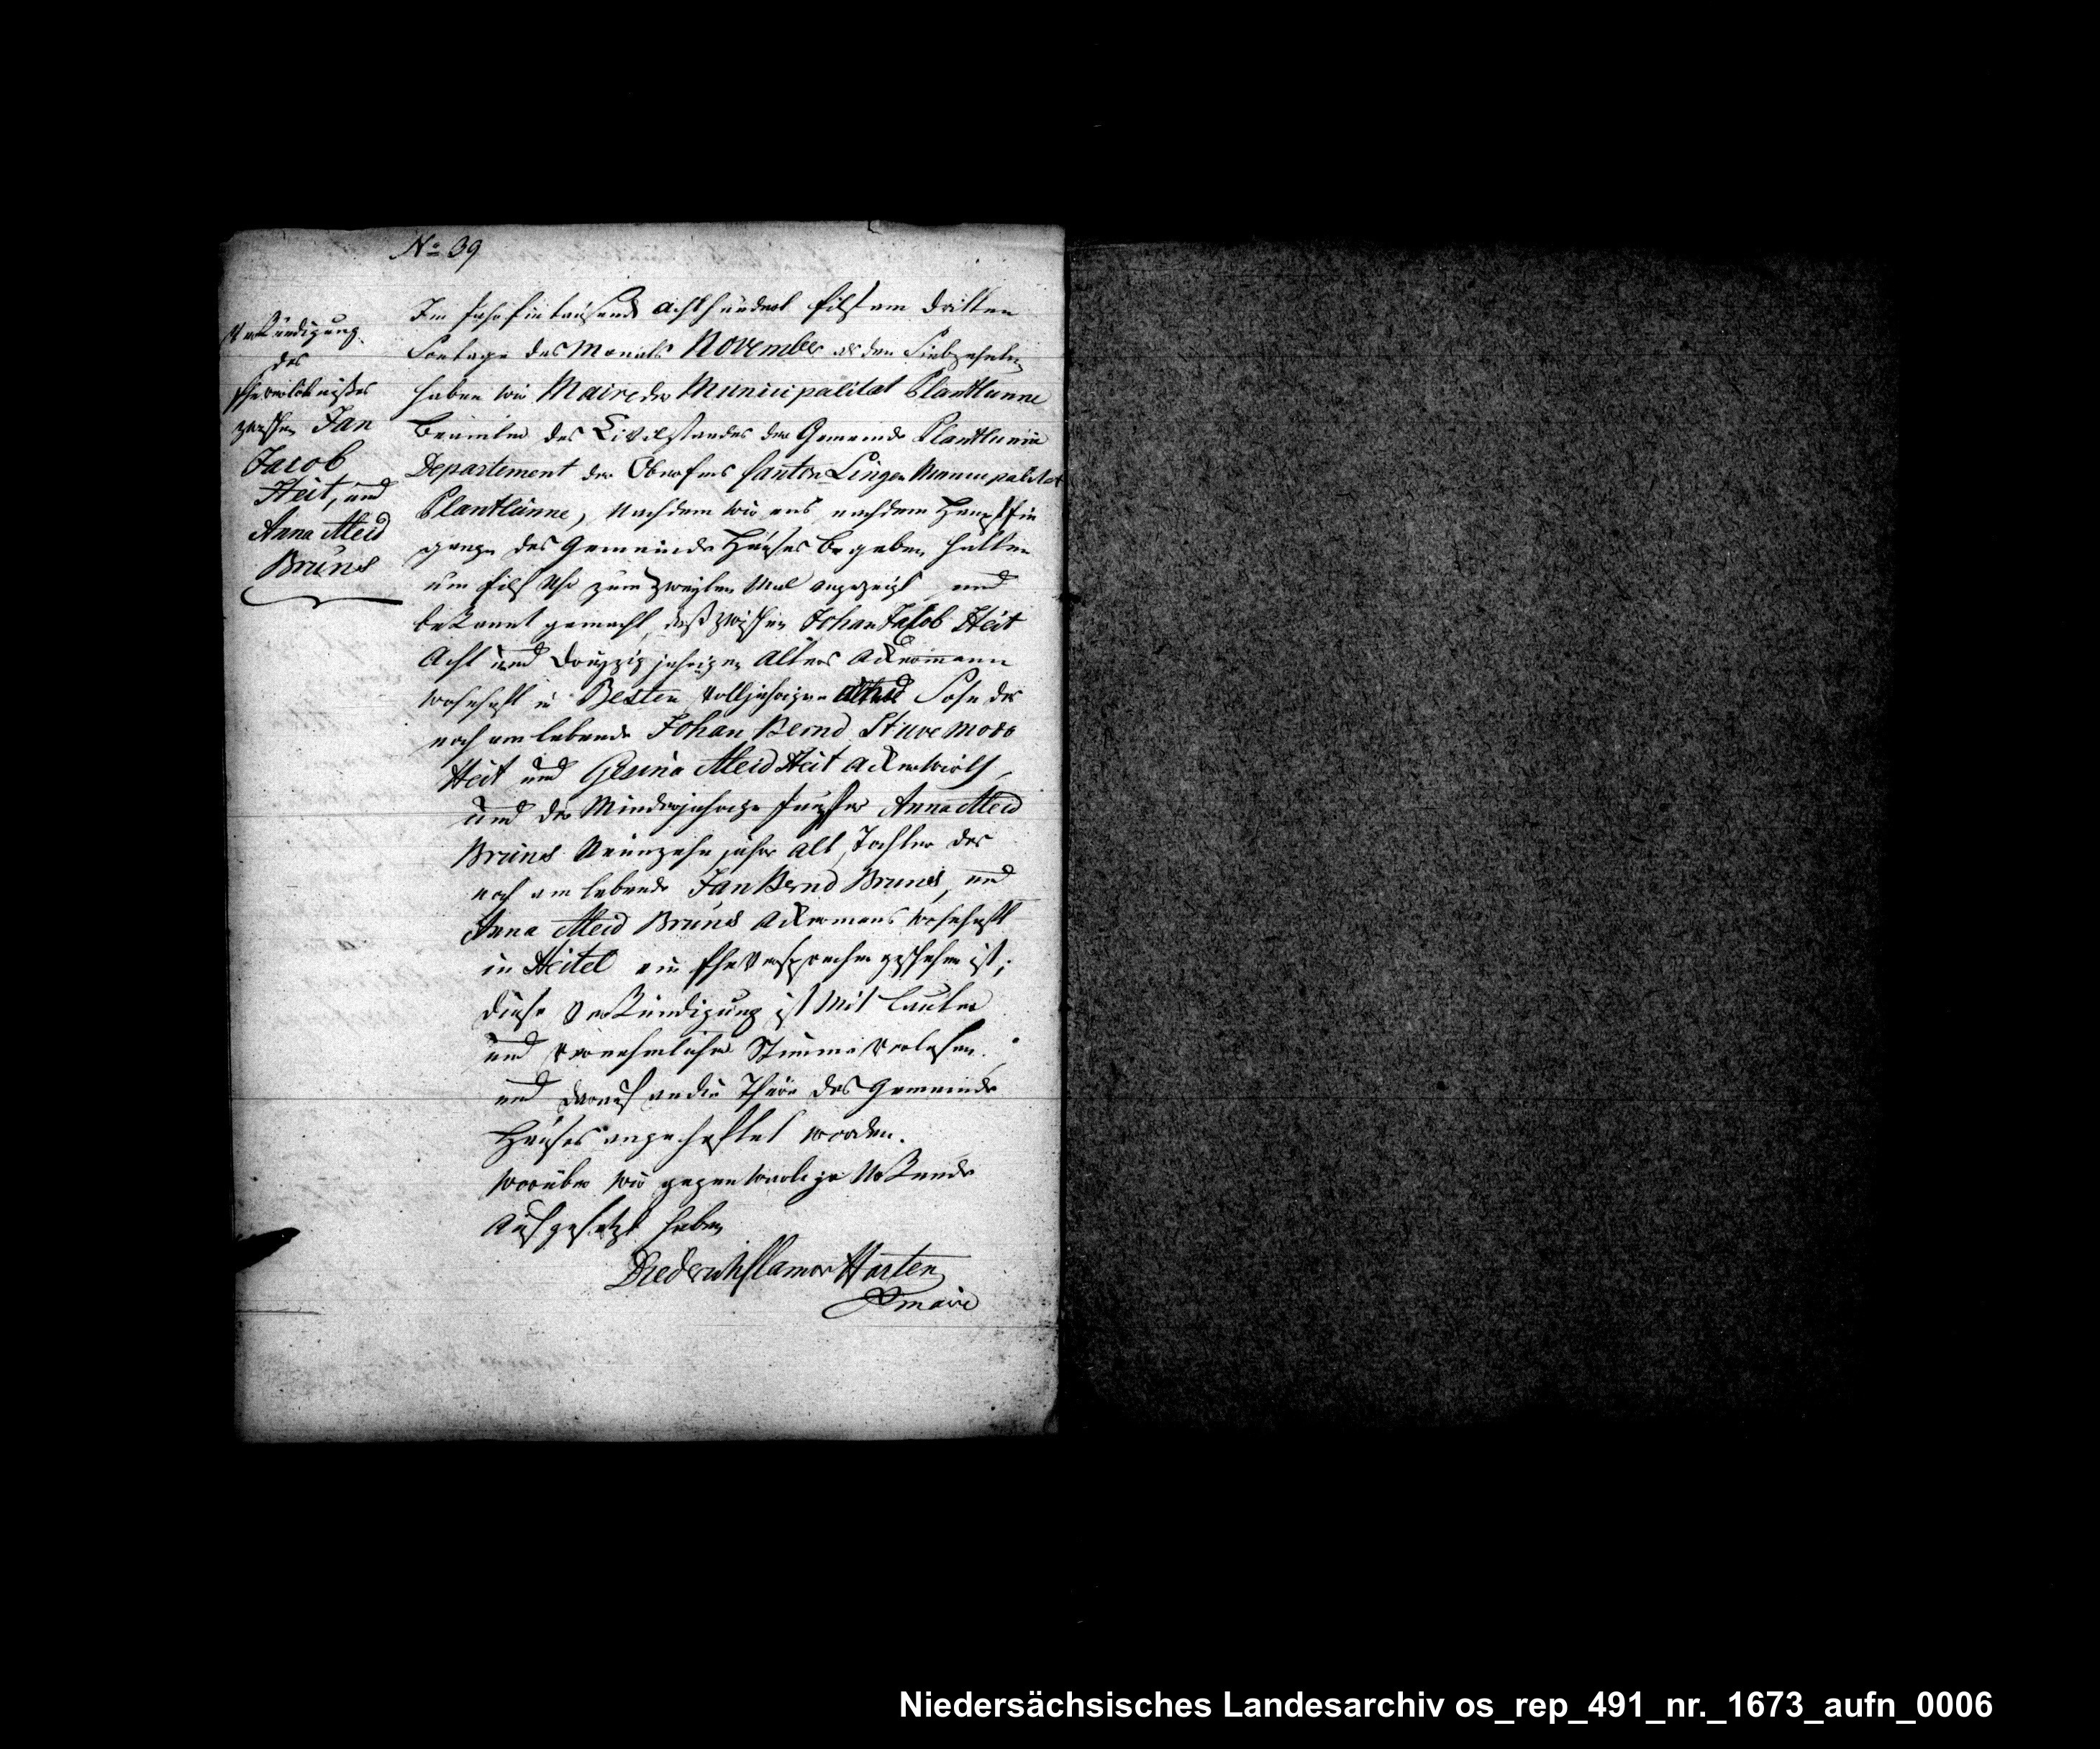 No 39
Verkündigung
des
Eheverlöbnißes
zwischen Jan
Jacob
Heit, und
Anna Aleid
Bruns
Im Jahr Eintausend achthundert Eilf am dritten
Sontage des Monats November als den Siebzehnten
haben wir Maire der Municipalitat Plantlunne
Beamter des Civilstandes der Gemeinde Plantlunne
Departement der Oberems Canton Lingen Municipalitat
Plantlünne, Nachdem wir uns nach dem Haupt Ein
gange des Gemeinde Hauses begeben hatten
um Eilf Uhr zum zweyten Mal angezeigt und
bekannt gemacht, daß zwischen Johan Jacob Heit
Acht und Dreyzig jahrigen Alters Ackermann
wohnhaft in Besten, volljahrigen Sohn des
noch am lebende Johan Bernd Stuve modo
Heit und Gesina Aleid Heit Ackerwirth,
und der Minderjahrige Jungfer Anna Aleid
Bruns Neunzehn jahr alt, Tochter des
noch am lebende Jan Bernd Bruns, und
Anna Aleid Bruns Ackermans wohnhaft
in Heitel ein Eheversprechen geschehen ist;
diese Verkündigung ist mit lauter
und vernehmlicher Stimme verlesen.
und darauf an die Thüre des Gemeinde
Hauses angeheftet worden.
worüber wir gegenwartige Urkunde
aufgesetzt haben
Diederich Clamor Harten
maire
Niedersächsisches Landesarchiv os_rep_491_nr._1673_aufn_0006